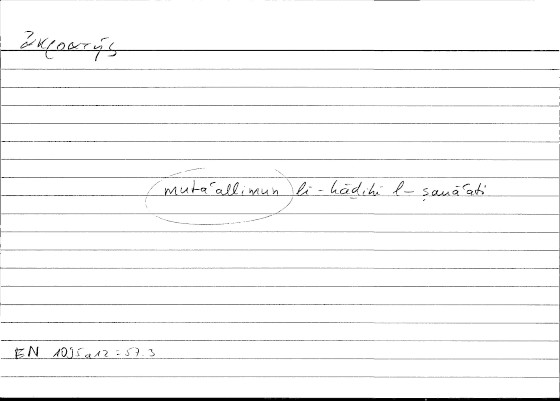 ἀκροατής
mutaʿallimun li-hāḏihi l-ṣanāʿati
EN 1095a12 : 57.3